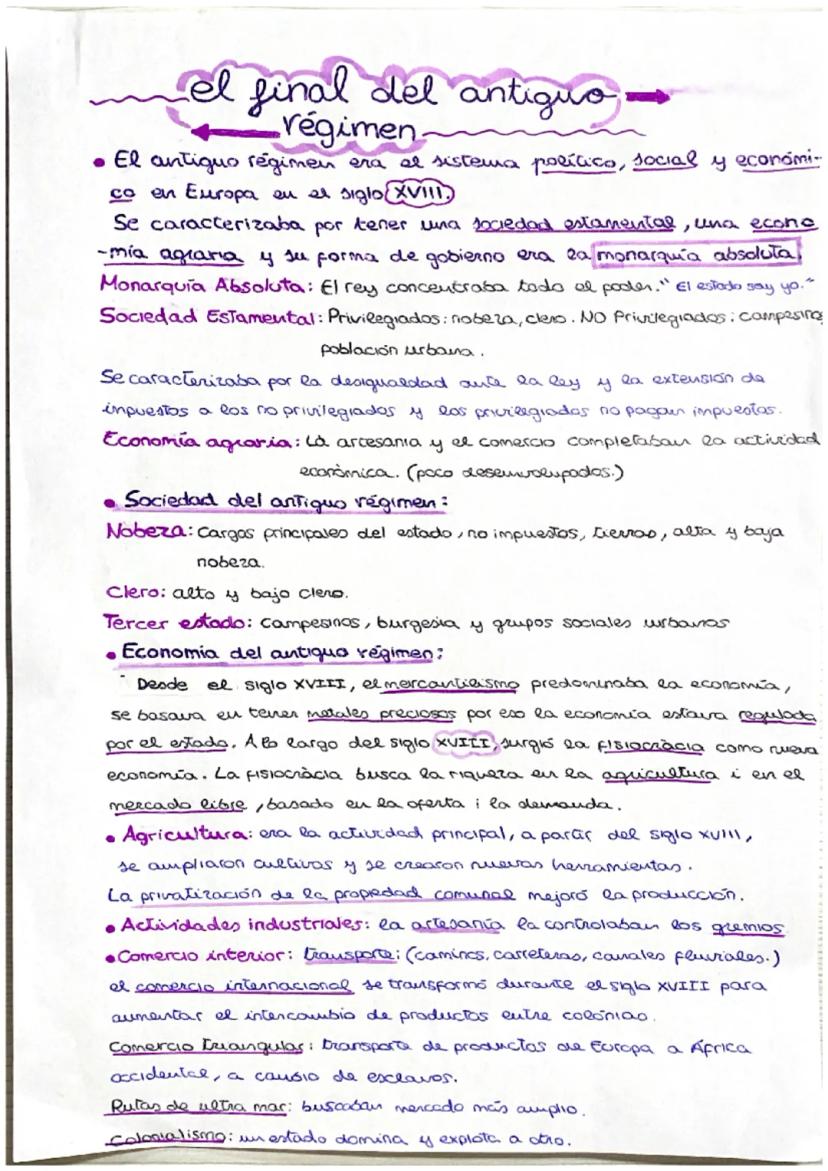 el final del antiguo
régimen
• El antiguo régimen era el sistema político, social y económi-
co en Europa en el siglo XVIII.
Se caracterizaba por tener una sociedad estamental, una econo
-mía agraria y su forma de gobierno era la monarquía absoluta.
Monarquía Absoluta: El rey concentraba todo el poder." El estado soy yo."
Sociedad Estamental: Privilegiados: nobeza, clero. NO Privilegiados: campesinos
población urbana.
Se caracterizaba por la desigualdad ante la ley y la extensión de
impuestos a los no privilegiados y los privilegiados no pagan impuestos.
Economía agraria: La artesania y el comercio completaban la actividad
econòmica. (poco desenvolupados.)
• Sociedad del antiguo régimen:
Nobeza: Cargos principales del estado, no impuestos, tierras, alta y baja
nobeza.
Clero: alto y bajo clero.
Tercer estado: Campesinos, burgesia y grupos sociales urbanos
• Economía del antiguo régimen:
Desde el siglo XVIII, el mercantilismo predominaba la economía,
se basava en tener metales preciosos por eso la economía estava regulada
por el estado. A lo largo del siglo XVIII, surgió la fisiocràcia como nueva
economía. La fisiocràcia busca la riqueza en la agricultura i en el
mercado libre, basado en la oferta i la demanda.
• Agricultura: era la actividad principal, a partir del siglo XVIII,
se ampliaron cultivos y se crearon nuevas herramientas.
La privatización de la propedad comunal mejoró la producción.
• Actividades industriales: la artesanía la controlaban los gremios
• Comercio interior: transporte: (caminos, carreteras, canales fluviales.)
el comercio internacional se transformó durante el siglo XVIII para
aumentar el intercambio de productos entre colònias.
Comercio triangular: transporte de productos de Europa a África
occidental, a causio de esclavos.
Rutas de ultra mar: buscaban mercado más amplio.
Colonialismo: un estado domina y explota a otro.